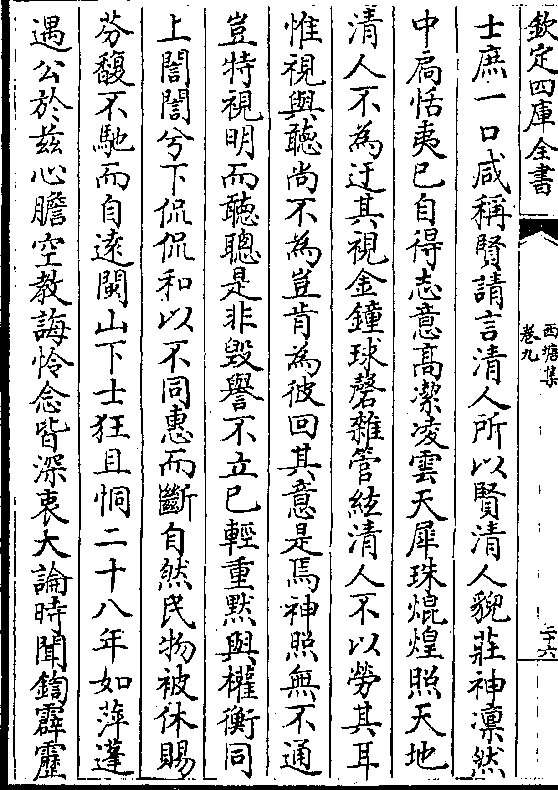 欽定四庫全書
西塘集
卷九
二十六
士庶一口咸稱賢請言清人所以賢清人貌莊神凛然
中扃恬夷已自得志意髙潔凌雲天犀珠焜煌照天地
清人不為迂其視金鐘球磬雜管絃清人不以勞其耳
惟視與聽尚不為豈肯為彼回其意是焉神照無不通
豈特視明而聽聰是非毀譽不立已輕重黙與權衡同
上誾誾兮下侃侃和以不同惠而斷自然民物被休賜
芬馥不馳而自逺閩山下士狂且恫二十八年如萍蓬
遇公於兹心膽空教誨怜念皆深衷大論時聞鍧霹靂